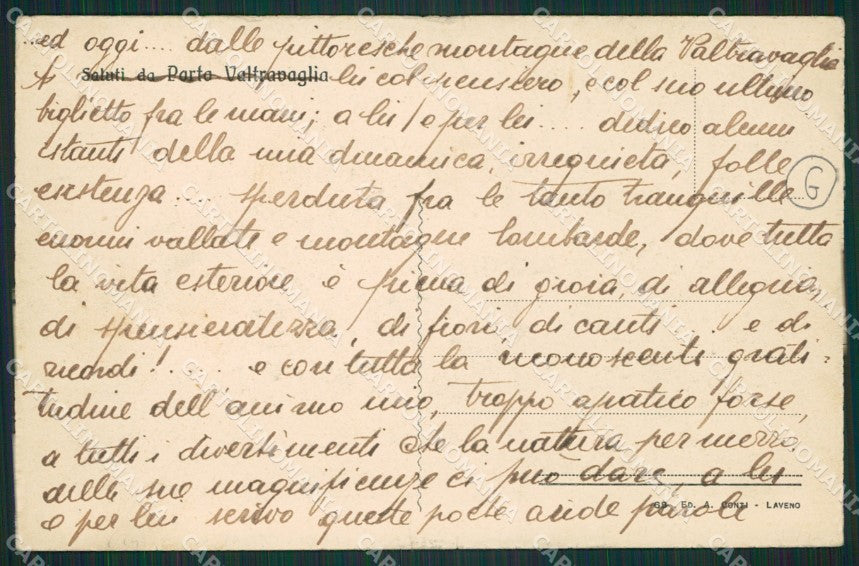 ...ed oggi.... dalle pittoresche montagne della Valtravaglia
A Saluti da Porto Valtravaglia lei col pensiero, e col suo ultimo
biglietto fra le mani; a lei e per lei.... dedico alcuni
istanti della mia dinamica, irrequieta, folle
esistenza.... sperduta fra le tanto tranquille
enormi vallate e montagne lombarde, dove tutta
la vita esteriore è piena di gioia, di allegria
di spensieratezza, di fiori, di canti.. e di
ricordi!.... e con tutta la riconoscente grati-
tudine dell'animo mio, troppo apatico forse,
a tutti i divertimenti che la natura per mezzo
delle sue magnificenze ci può dare, a lei
e per lei scrivo queste poche aride parole
G
ED. A. CONTI - LAVENO
CARTOLINOMANIA